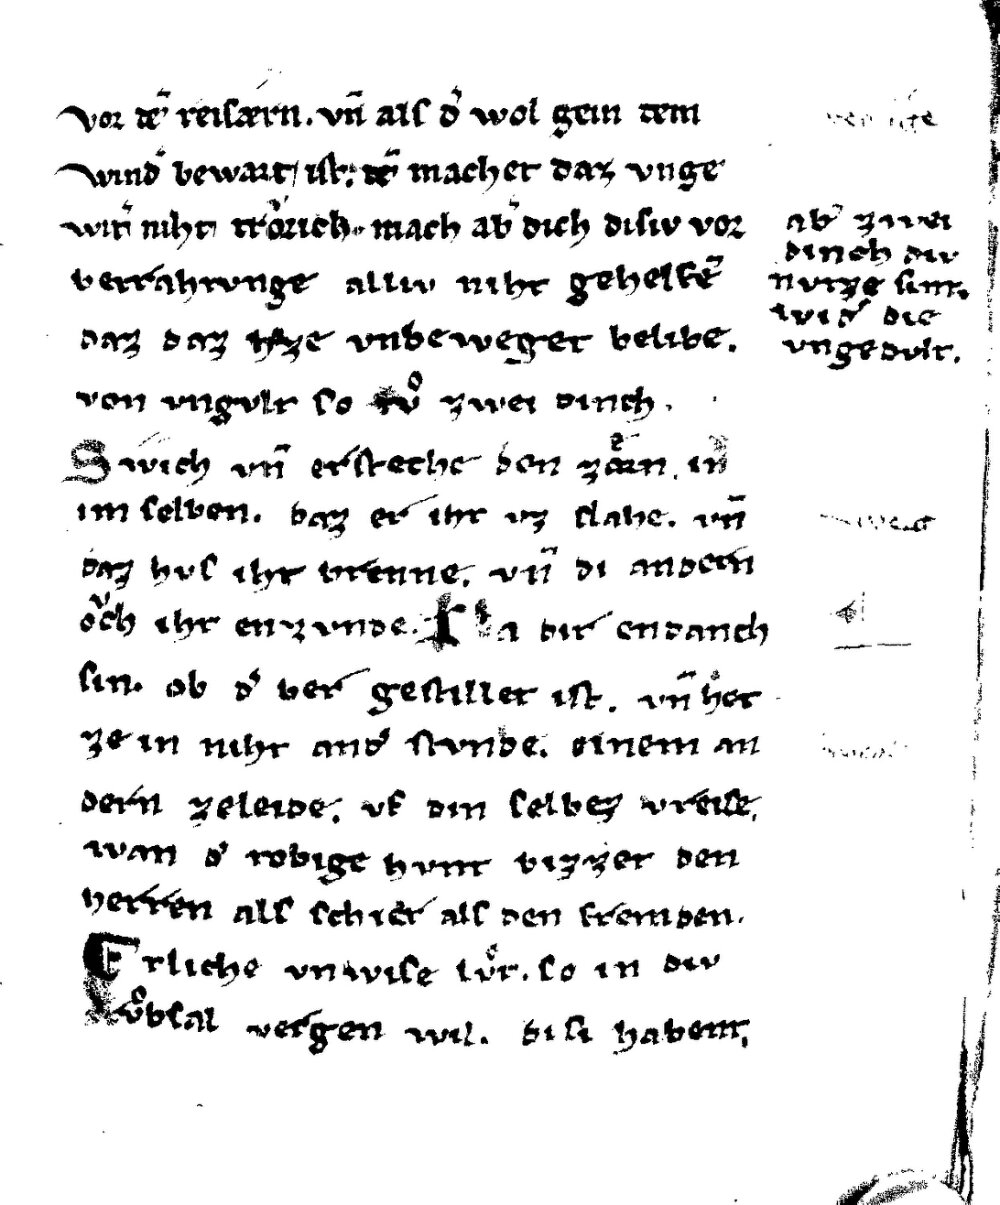 vor dē reisærn. vn̄ als d᾽ wol gein dem
wind᾽ bewart ist. dē machet daz vnge
wit᾽ niht trŏrich. mach ab᾽ dich disiv vor
betrahtvnge alliv niht gehelfē
daz daz h᾽ze vnbeweget belibe.
von vngvlt so tv̊ zwei dinch.
Swich vn̄ ersteche den zorn. in
im selben. daz er iht vz slahe. vn̄
daz hvs iht brenne. vn̄ di andern
ŏch iht enzvnde. La dir endanch
sin. ob d᾽ ber gestillet ist. vn̄ het
ze in niht and᾽ stvnde. einem an
dern zeleide. vf din selbez vreise.
wan d᾽ tobige hvnt bizzet den
herren als schier als den fremden.
Etliche vnwise lv̊t. so in div
trv̊bsal vergen wil. disi habent,
ab᾽ zwei
dinch div
nvtze sint.
wid᾽ die
vngedvlt.